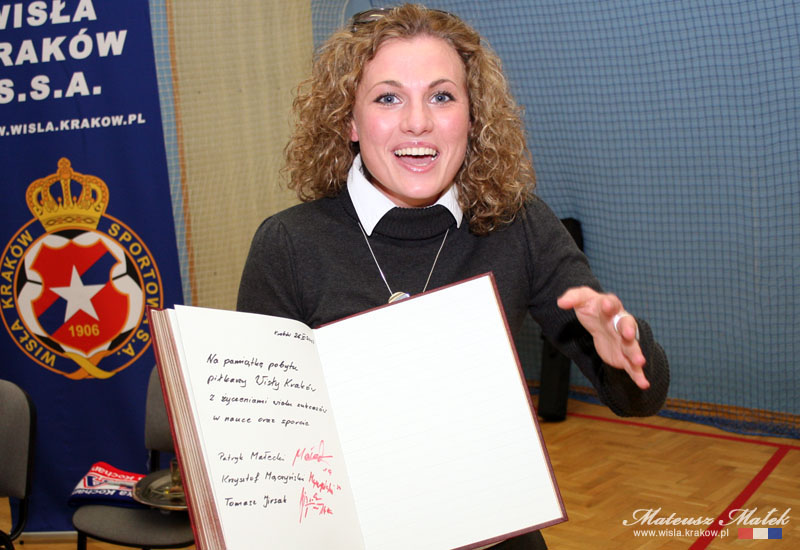 WISŁA
KRAKÓW
S.S.A.
WWW.WISLA.KRAKOW.PL
WISŁA KRAKÓW SPORTOWA S.A.
1906
Kraków
Na pamiątkę pobytu
piłkarzy Wisły Kraków
z życzeniami wielu sukcesów
w nauce oraz sporcie
Patryk Małecki
Krzysztof Mączyński
Tomasz Jirsak
Kocham
Mateusz Małek
www.wisla.krakow.pl